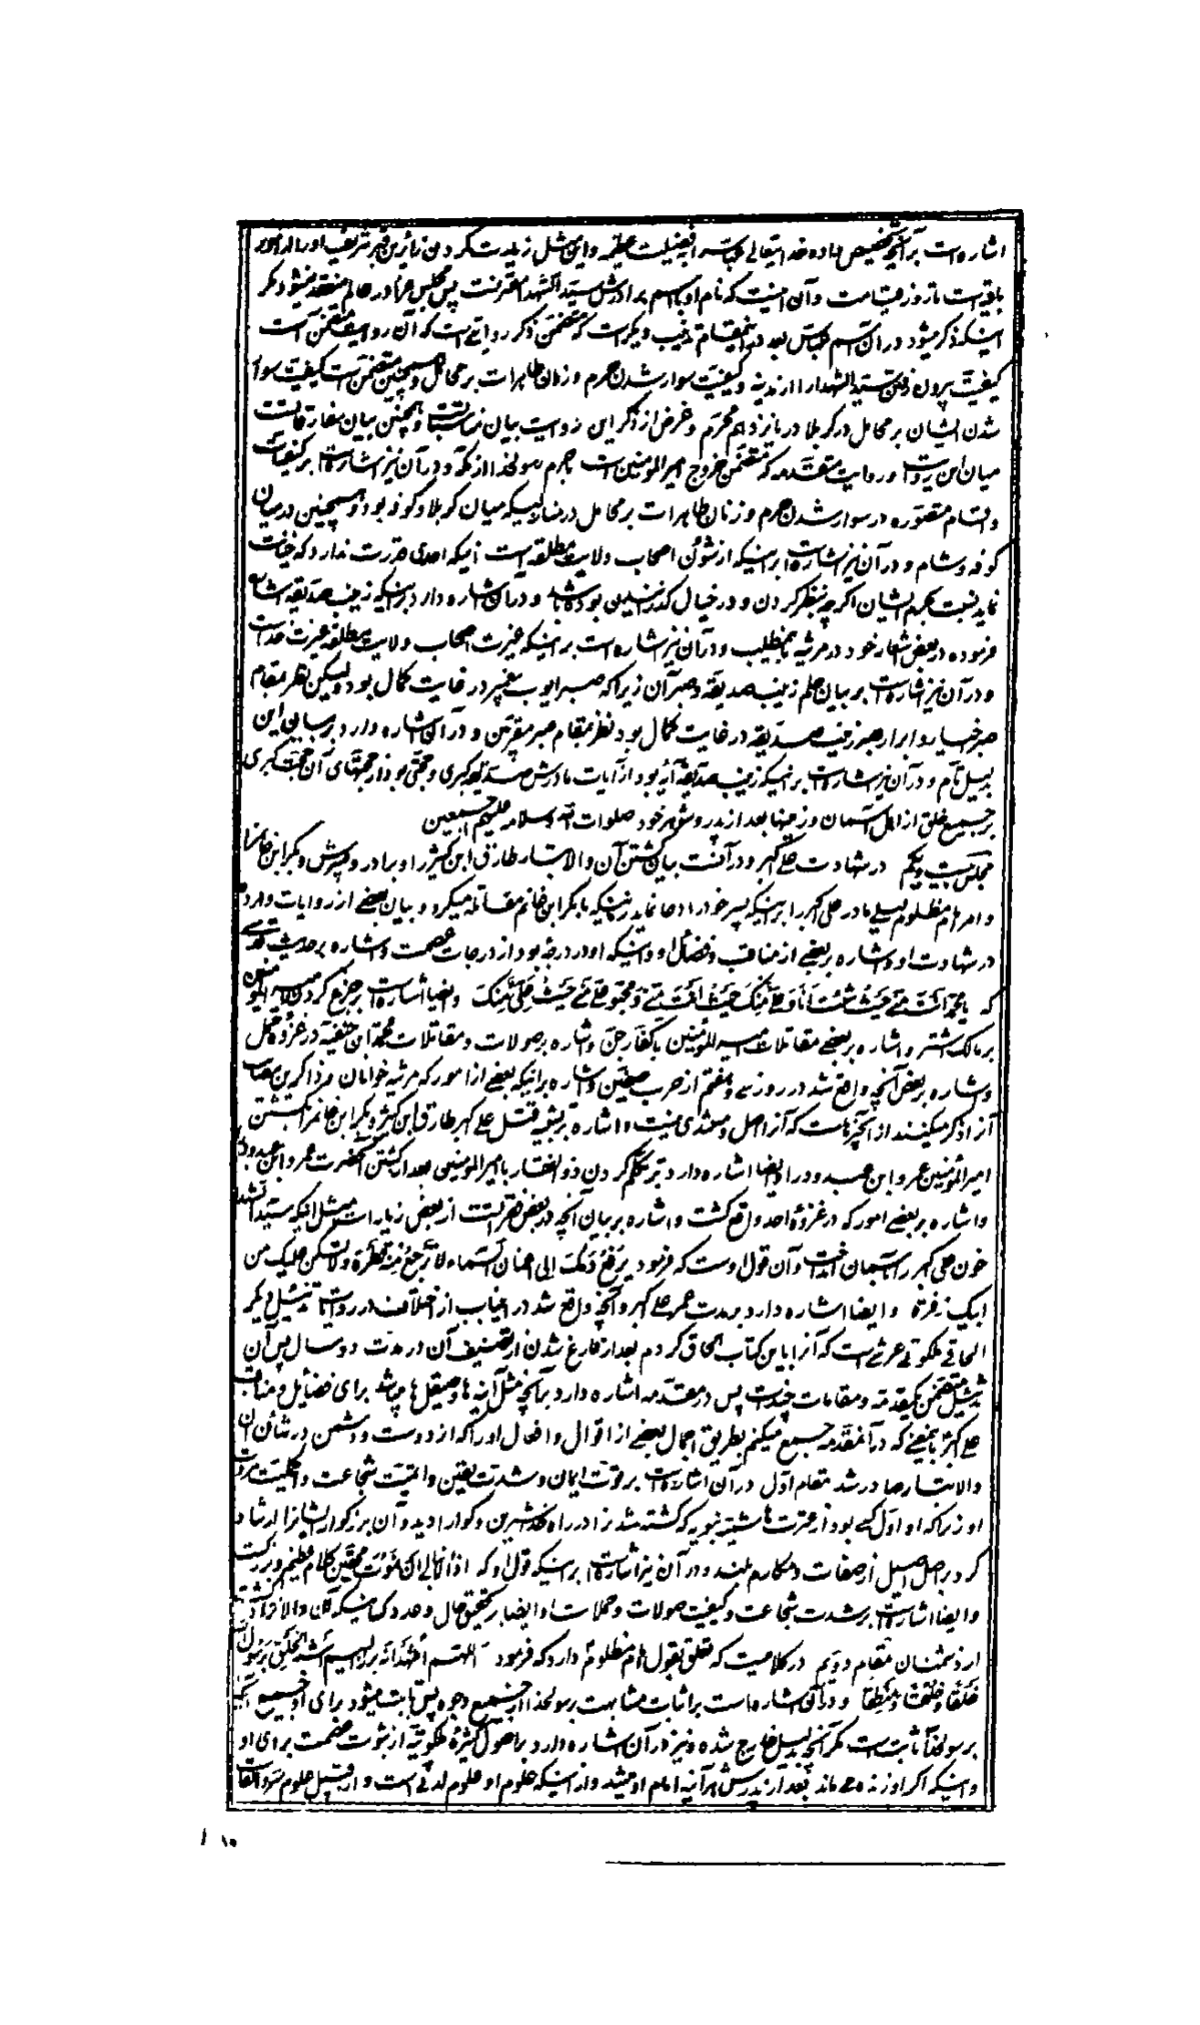 اشاره است بر آنچه تخصیص داده خدایتعالی عباس را بفضیلت عظیمه و این مثل زیارت کردن زائرین قبر شریف او را
باقیست تا روز قیامت و آن اینست که نام او باسم برادرش سید الشهدا مقترنست پس مجلس عزا در عالم منعقد نمیشود مگر
اینکه ذکر میشود در آن اسم عباس بعد در اینمقام تذنیب دیگر است که متضمن ذکر روایتی است که آن روایت متضمن است
کیفیت بیرون رفتن سید الشهدا را از مدینه و کیفیت سوار شدن حرم و زنان طاهرات بر محامل و همچنین متضمن است کیفیت سوار
شدن ایشان بر محامل در کربلا در یازدهم محرم و غرض از ذکر این روایت بیان مناسبات و همچنین بیان مفارقات است
میان این روایت و روایت متقدمه که متضمن خروج امیر المؤمنین است بحرم رسولخدا از مکه و در آن نیز اشاره است بر کیفیات
و اقسام متصوره در سوار شدن حرم و زنان طاهرات بر محامل در منازلیکه میان کربلا و کوفه بود و همچنین در میان
کوفه و شام و در آن نیز اشاره است بر اینکه از شئون اصحاب ولایت مطلقه است اینکه احدی قدرت ندارد که خیانت
نماید نسبت بحرم ایشان اگرچه بنظر کردن و در خیال گذرانیدن بوده باشد و در آن اشاره دارد بر اینکه زینب صدیقه انشا
فرموده در بعض اشعار خود در مرثیه باینمطلب و در آن نیز اشاره است بر اینکه غیرت اصحاب ولایت مطلقه غیرت خداست
و در آن نیز اشاره است بر بیان حلم زینب صدیقه و صبر آن زیرا که صبر ایوب پیغمبر در غایت کمال بود ولیکن نظر بمقام
صبر اخیار و ابرار و صبر زینب صدیقه در غایت کمال بود نظر بمقام صبر مقربین و در آن اشاره دارد بر بیان این
بدلیل تام و در آن نیز اشاره است بر اینکه زینب صدیقه آیه بود از آیات مادرش صدیقه کبری و حجتی بود از حجتهای آن حجت کبری
بر جمیع خلق از اهل آسمان و زمینها بعد از پدر و شوهر خود صلوات الله و سلامه علیهم اجمعین
مجلس بیست و یکم در شهادت علی اکبر و در آنست بیان کشتن آن والا تبار طارق ابن کثیر را و برادر و پسرش و بکر ابن غانم را
و امر امام مظلوم لیلی مادر علی اکبر را بر اینکه پسر خود را دعا نماید زمانیکه با بکر ابن غانم مقاتله میکرد و بیان بعضی از روایات وارده
در شهادت او و اشاره بر بعضی از مناقب و فضائل او و اینکه او در درجه بود از درجات عصمت و اشاره بر حدیث قدسی
که یا محمد انت منی حیث شئت انا و علی منک حیث انت منی و محبو علی منی حیث علی منک و ایضا اشاره است بر جزع کردن امیر المؤمنین
بر مالک اشتر و اشاره بر بعضی مقاتلات امیر المؤمنین با کفار جن و اشاره بر صولات و مقاتلات محمد ابن حنفیه در غزوه جمل
و اشاره بر بعض آنچه واقع شد در روز سی و هفتم از حرب صفین و اشاره بر اینکه بعضی از امور که مرثیه خوانان و ذاکرین مصائب
آنرا ذکر میکنند از آنچیزهاست که آنرا اصل و سندی نیست و اشاره بر تشبیه قتل علی اکبر طارق ابن کثیر و بکر ابن غانم را بکشتن
امیر المؤمنین عمرو ابن عبدود را و ایضا اشاره دارد بر تکلم کردن ذو الفقار با امیر المؤمنین بعد از کشتن آنحضرت عمرو ابن عبدود را
و اشاره بر بعضی امور که در غزوه احد واقع گشت و اشاره بر بیان آنچه در بعض فقراتست از بعض زیارات مثل اینکه سید الشهدا
خون علی اکبر را بآسمان انداخت و آن قول اوست که فرمود یرفع دمک الی عنان السماء لا ترجع منه قطرة و لا تسکن علیک من
ابیک زفرة و ایضا اشاره دارد بمدت عمر علی اکبر و آنچه واقع شد در اینباب از اختلاف در روایات تذییل دیگر
الحاقی ملکوتی عرشی است که آنرا باین کتاب الحاق کردم بعد از فارغ شدن از تصنیف آن در مدت دو سال پس آن
تذییل متضمن یکمقدمه و مقامات چند است پس در مقدمه اشاره دارد بر آنچه مثل آینه ها و صیقلها میباشد برای فضائل و مناقب
علی اکبر باینمعنی که در آنمقدمه جمع میکنم بطریق اجمال بعضی از اقوال و افعال او را که از دوست و دشمن در شأن آن
والا تبار صادر شد مقام اول در آن اشاره است بر قوت ایمان و شدت یقین و اتمیت شجاعت و اکملیت مروت
او زیرا که او اول کسی بود از عترت هاشمیه نبویه که کشته شدن را در راه خدا شیرین و گوارا دید و آن بزرگوار ایشانرا ارشاد
کرد بر اصل اصیل از صفات و مکارم بلند و در آن نیز اشاره است بر اینکه قول او که اذا لا نبالی ان نموت محقین کلام عظیم و بزرگیست
و ایضا اشاره است بر شدت شجاعت و کیفیت صولات و حملات او و ایضا بر تحقیق حال و عدد کسانیکه آن والا نژاد کشت
از دشمنان مقام دویم در کلامیست که تعلق بقول امام مظلوم دارد که فرمود اللهم اشهد انه برز الیهم اشبه الخلق برسولک
خلقا و خلقا و منطقا و در آن اشاره است بر اثبات مشابهت رسولخدا از جمیع وجوه پس ثابت میشود برای او جمیع آنچه
بر رسولخدا ثابت است مگر آنچه بدلیل خارج شده و نیز در آن اشاره دارد بر اصول کثیره ملکوتیه از ثبوت عصمت برای او
و اینکه اگر او زنده می ماند بعد از پدرش هر آینه امام او میشد و از اینکه علوم او علوم لدنی است و از قبیل علوم